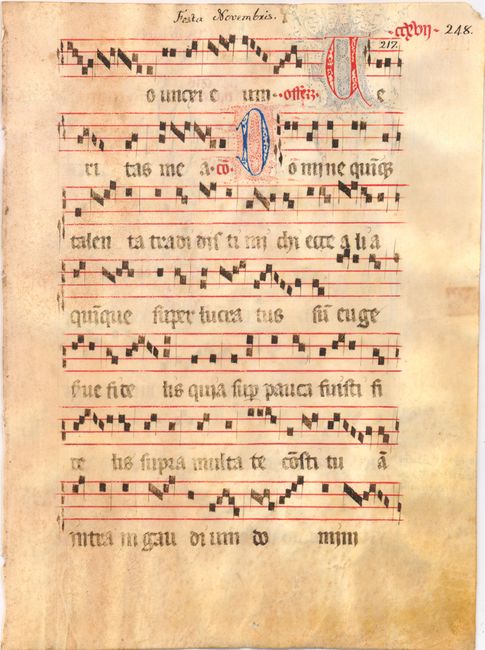 Festa Novembris.
ccxvij 248.
217.
o uncri e um offerz. U e
ri tas me a cō D ōmine quīq3
talen ta tradi dis ti mi chi ecce a li a
quīque super lucra tus sū euge
serve fi de lis quia sup pauca fuisti fi
de lis supra multa te cōsti tu ā
intra in gau di um do mini